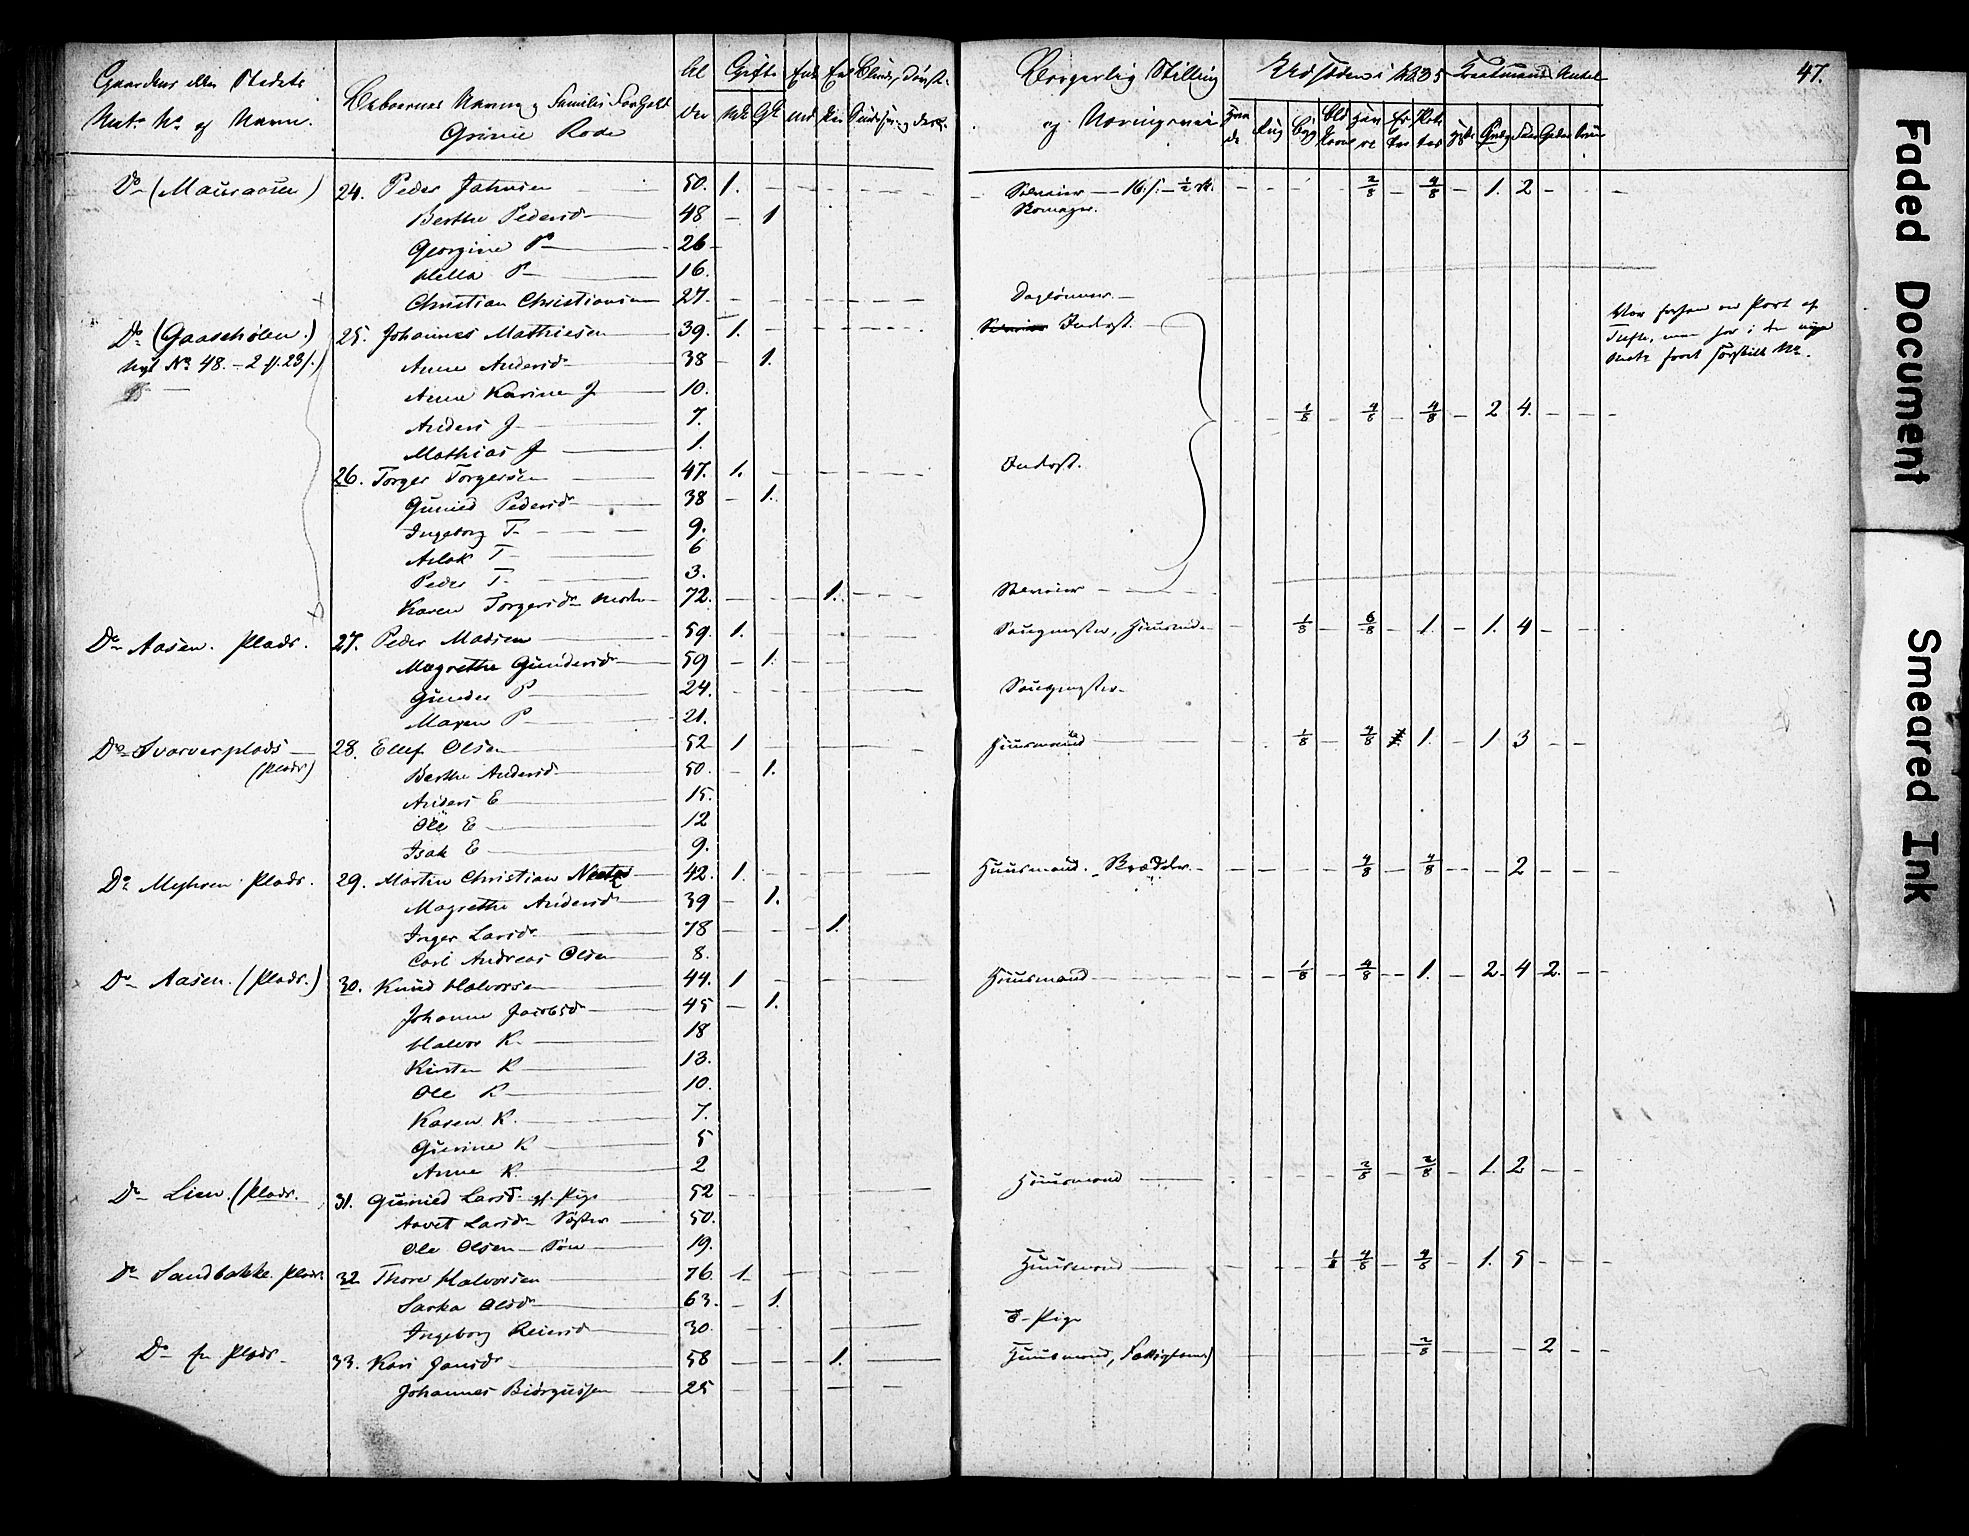 Gaardens eller Stedets
Matr. No og Navn.
Beboernes Navne og Familie Forhold
Grinie Rode
Al
der
Gifte
Mk Qk
Borgerlig Stilling
og Næringsvei
Udsæden i 1835
Rug
Byg
Kreaturenes Antal
47.
Do (Mauraasen) 24. Peder Johnsen 50. 1. Selveier — 16 s. 2/8 4/8 1. 2
Berthe Pedersd 48 — 1 Skomager.
Georgine P 26
Helle P 16.
Christian Christiansen 27. Daglønner.
Do (Gaasehølen.) 25. Johannes Mathiesen 39. 1. Inderst.
nyt No 48. — 2 23
Anne Andersd 38 — 1.
Anne Karine J 10. 1/8 4/8 4/8 2 4.
Anders J 7.
Mathias J 1.
26. Torger Torgersen 47. 1. Inderst.
Gunild Pedersd 38 — 1.
Ingeborg T. 9.
Aslak T 6
Peder T. 3.
Karen Torgersdr 72. 1. Selveier
Do Aasen. Plads. 27. Peder Madsen 59. 1. Saugmester, 1/8 6/8 1. 1. 4
Magrethe Gundersd 59 — 1.
Gunder P 24. Saugmester
Maren P 21.
Do Svarverplads 28. Ellef Olsen 52 1 Huusmand 1/8 4/8 1. 1 3
(Plads)
Berthe Andersd 50. — 1.
Anders E 15.
Ole E 12
Isak E 9.
Do Myhren Plads. 29. Martin Christian 42. 1. Huusmand. Skrædder. 4/8 4/8 2
Magrethe Andersd 39 1.
Inger Larsdr 78 1.
Carl Andreas Olsen 8.
Do Aasen. (Plads.) 30. Knud Halvorsen 44. 1 Huusmand 1/8 4/8 1. 2. 4 2.
Johanne Jacobsd 45 — 1.
Halvor K. 18
Kirsten K 13.
Ole K 10.
Karen K. 7.
Gurine K 5
Anne K. 2
Do Lien. (Plads. 31. Gunild Larsd. Pige 52 Huusmand 2/8 2/8 1. 2
Larsdr Søster 50.
Ole Olsen Søn 19.
Do Sandbakke Plads 32 Thore Halvorsen 76. 1. Huusmand 1/8 4/8 4/8 1. 5
Olsdr 63. 1.
Ingeborg Reiersd 30. Pige
Do Plads 33. Kari Jansdr 58 1. Huusmand, 2/8 2
Johannes 25
Faded Document
Smeared Ink